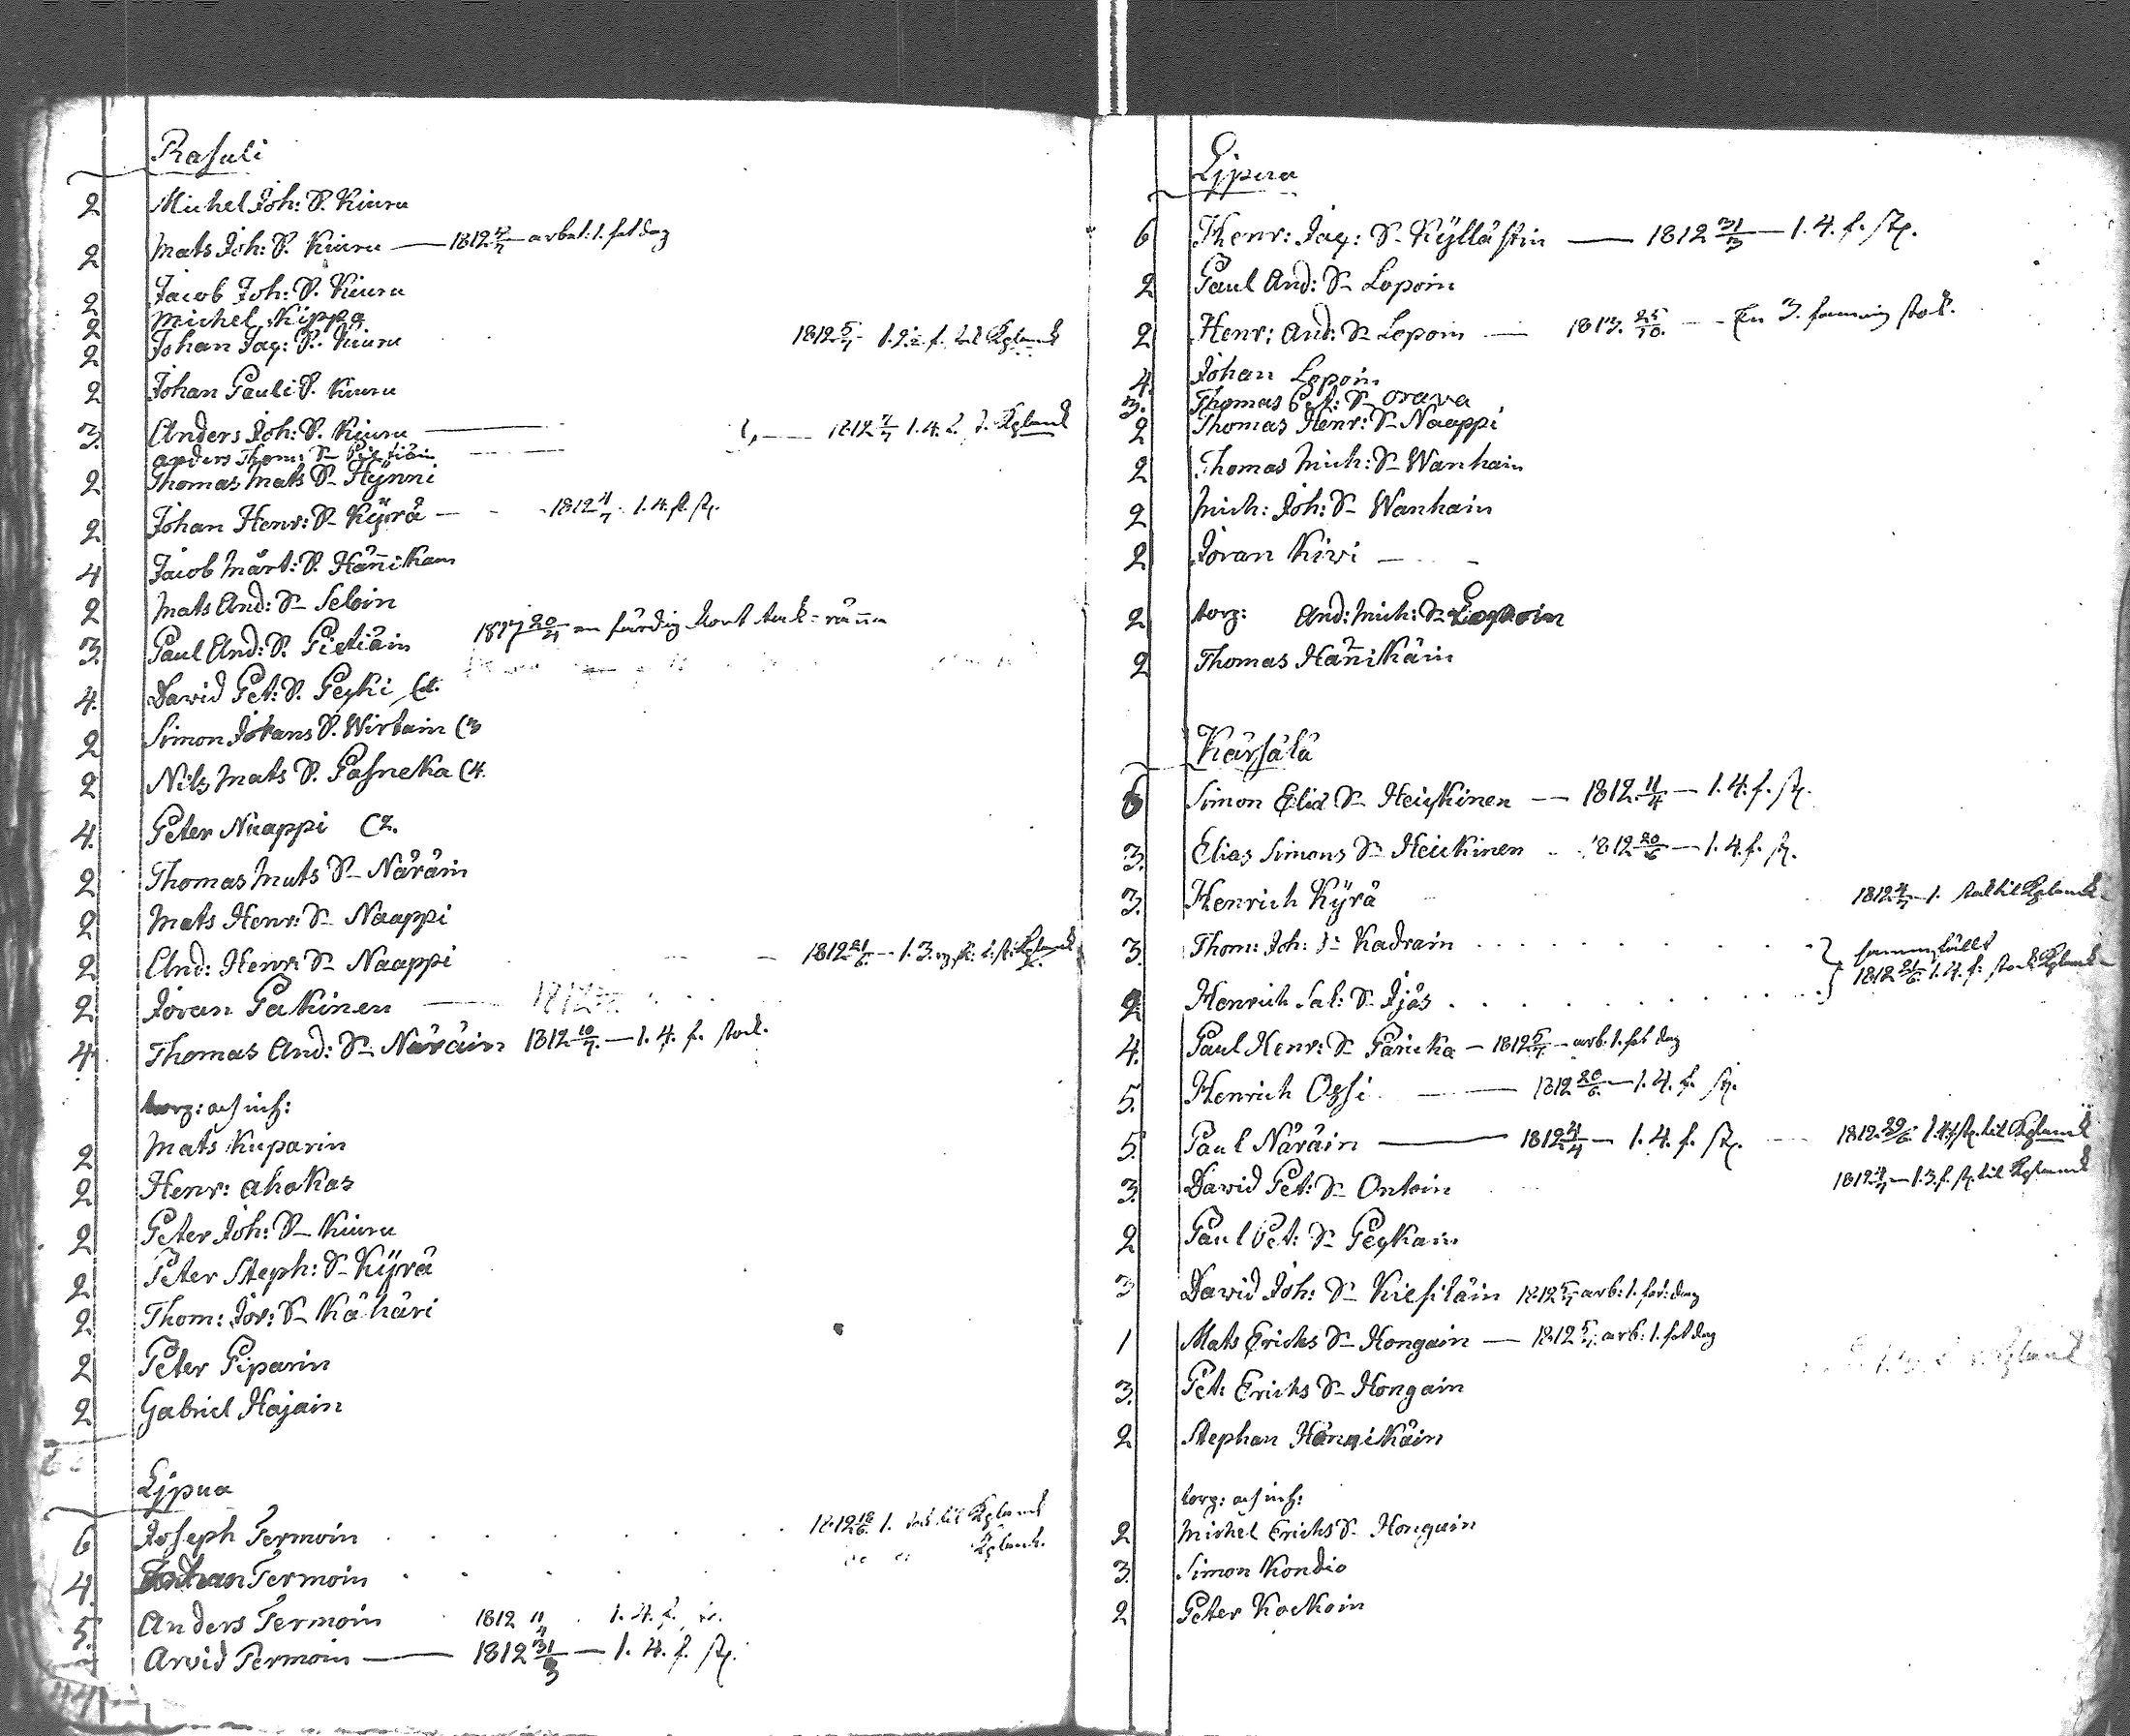 Rasuli
2 Michel Joh: S. Kiuru
2 Mats Joh: S. Kiuru — 1812 — arbet: 1. fot dag
2 Jacob Joh: S. Kiuru
2 Michel Kippa
2 Johan Jaq: S. Kiuru 1812 5/7 til Kgland
2 Johan Pauli S. Kiuru
3. Anders Joh: S. Kiuru — 1812 1. 4. Kgland
Anders Thom: S— Pietiäin
2 Thomas Mats S— Hynni
2 Johan Henr: S— Kÿrä — 1812 1. 4. f. st.
4 Jacob Mårt: S. Hän̄ikain
2 Mats And: S— Seloin
3. Paul And: S. Pietiäin 1817 20/4 en färdig kort tak-rän̄a
4. David Pet: S. Peszki
2 Simon Johans S. Wirtain (3
2 Nils Mats S. Pasneka (4.
4. Peter Naappi (2.
2 Thomas Mats S— Näräin
2 Mats Henr: S— Naappi
2 And: Henr: S— Naappi 1812 21/6 — 1. 3. Kgland
2 Jöran Pakinen — 1812
4. Thomas And: S— Näräin 1812 10/7. — 1. 4. f. stock.
torp: och inh:
2 Mats Kuparin
2 Henr: Ahokas
2 Peter Joh: S— Kiuru
2 Peter Steph: S— Kÿrä
2 Thom: Jör: S— Kähäri
2 Peter Piparin
2 Gabriel Hajain
Lipua
6 Joseph Termoin 1812 1. til Kgland
4. Johan Termoin Kgland.
5. Anders Termoin 1812 11/4 1. 4. f.
Arvid Termoin — 1812 31/3 — 1. 4. f. st.
Lipua
6 Henr: Jaq: S— Kÿllästin — 1812 31/3 — 1. 4. f. st.
2 Paul And: S— Lopoin
2 Henr: And: S— Lopoin — 1813. 25/10. — En 3. famnig stock.
4. Johan Lopoin
3. Thomas Pet: S— Orava
2 Thomas Henr: S— Naappi
2 Thomas Mich: S— Wanhain
2 Mich: Joh: S— Wanhain
2 Jöran Kiwi —
2 torp: And: Mich: S— Lopoin
2 Thomas Hän̄ikäin
Kärsälä
6 Simon Elia S— Heiskinen — 1812. 11/4 — 1. 4. f. st.
3. Elias Simons S— Heickinen 1812 20/6 — 1. 4. f. st.
3. Henrich Kÿrä 1812 — 1. til Kgland
3. Thom: Joh: S— Kadrain
2 Henrich Sal: S— Ijäs 1812 21/6. 1. 4. f. stock Kgland
4. Paul Henr: S— Päricka — 1812 5/7 — arb. 1. fot dag
5. Henrich Ossi — 1812 20/6. — 1. 4. f. st.
5. Paul Näräin — 1812 — 1. 4. f. st. 1812. 29/6. 1. 4. f. st. til Kgland
3. David Pet: S— Ontoin 1812 — 1. 3. f. st. til Kgland
2 Paul Pet: S— Peskain
3 David Joh: S— Kiesiläin 1812 5/7 arb: 1. fot: dag
1 Mats Erichs S— Hongain — 1812 5/7 arb: 1. fot dag
3. Pet: Erichs S— Hongain Kgland
2 Stephan Hännikäin
torp: och inh:
2 Michel Erichs S— Hongain
3. Simon Kondio
2 Peter Kockoin